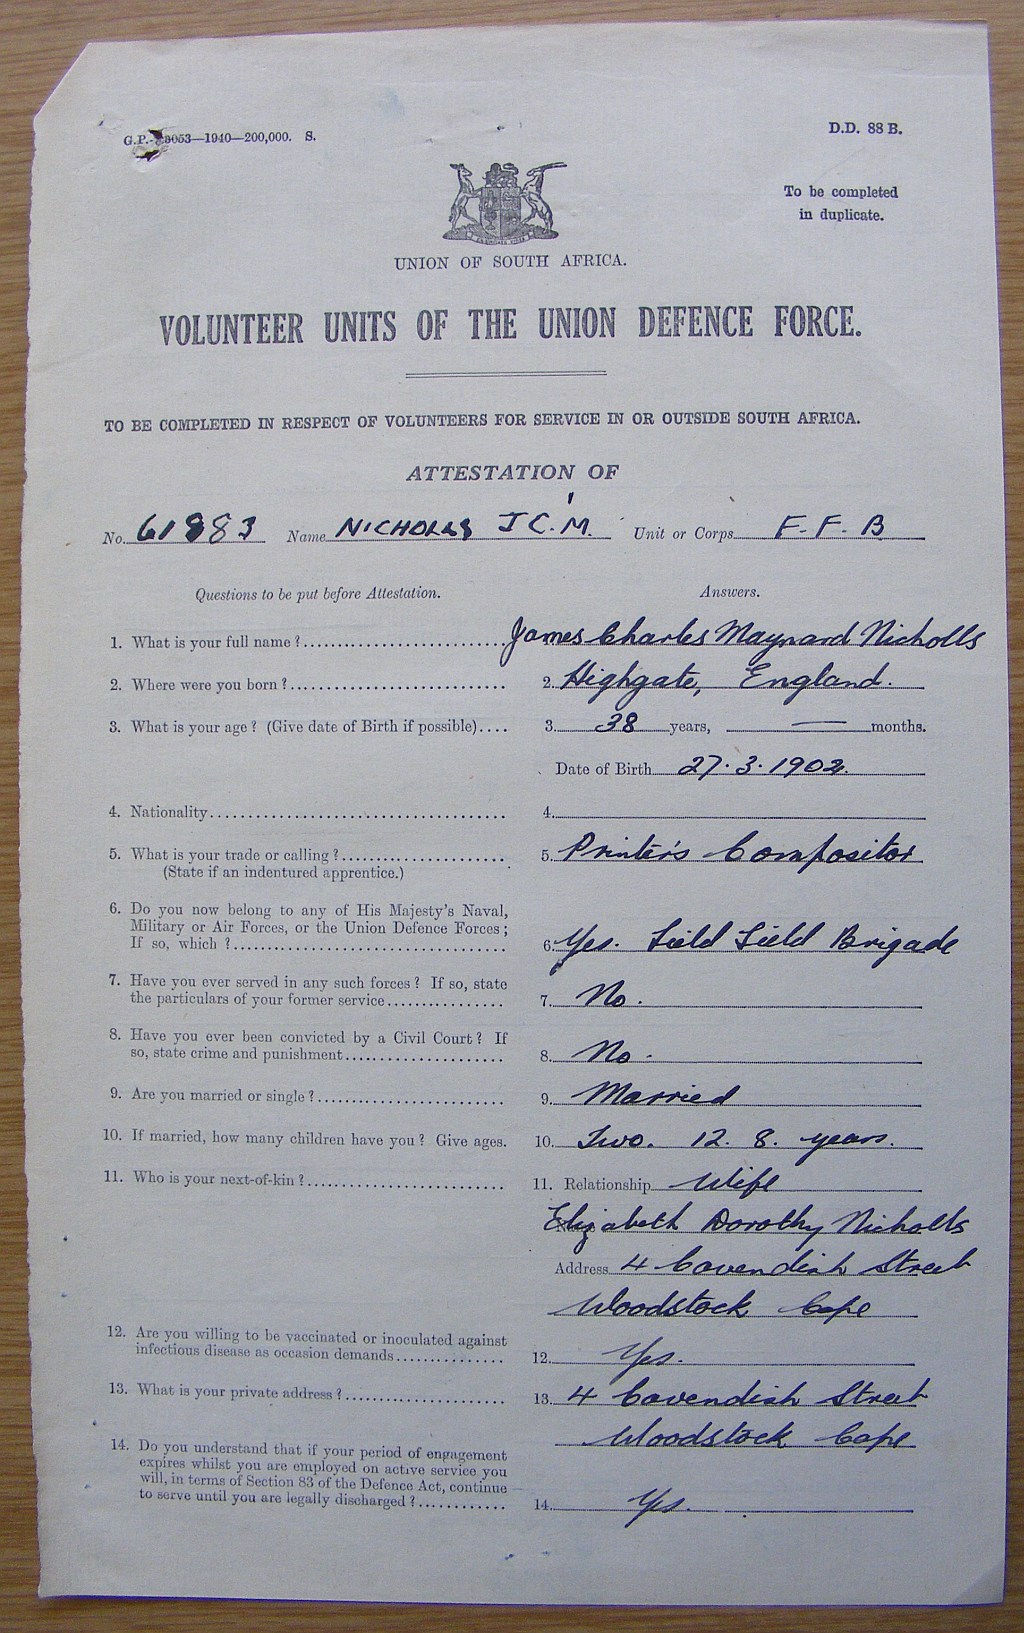 G.P.-S.8053—1940—200,000. S.
D.D. 88 B.
To be completed
in duplicate.
UNION OF SOUTH AFRICA.
VOLUNTEER UNITS OF THE UNION DEFENCE FORCE.
TO BE COMPLETED IN RESPECT OF VOLUNTEERS FOR SERVICE IN OR OUTSIDE SOUTH AFRICA.
ATTESTATION OF
No. 61883 Name NICHOLLS J C. M. Unit or Corps F. F. B
Questions to be put before Attestation. Answers.
1. What is your full name? James Charles Maynard Nicholls
2. Where were you born? 2. Highgate, England.
3. What is your age? (Give date of Birth if possible) 3. 38 years, — months.
Date of Birth 27.3.1902.
4. Nationality 4.
5. What is your trade or calling? 5. Printer's Compositor
(State if an indentured apprentice.)
6. Do you now belong to any of His Majesty's Naval,
Military or Air Forces, or the Union Defence Forces;
If so, which? 6. Yes. Field Field Brigade
7. Have you ever served in any such forces? If so, state
the particulars of your former service 7. No.
8. Have you ever been convicted by a Civil Court? If
so, state crime and punishment 8. No.
9. Are you married or single? 9. Married
10. If married, how many children have you? Give ages. 10. Two. 12. 8. years.
11. Who is your next-of-kin? 11. Relationship Wife
Elizabeth Dorothy Nicholls
Address 4 Cavendish Street
Woodstock Cape
12. Are you willing to be vaccinated or inoculated against
infectious disease as occasion demands 12. Yes.
13. What is your private address? 13. 4 Cavendish Street
Woodstock Cape
14. Do you understand that if your period of engagement
expires whilst you are employed on active service you
will, in terms of Section 83 of the Defence Act, continue
to serve until you are legally discharged? 14. Yes.